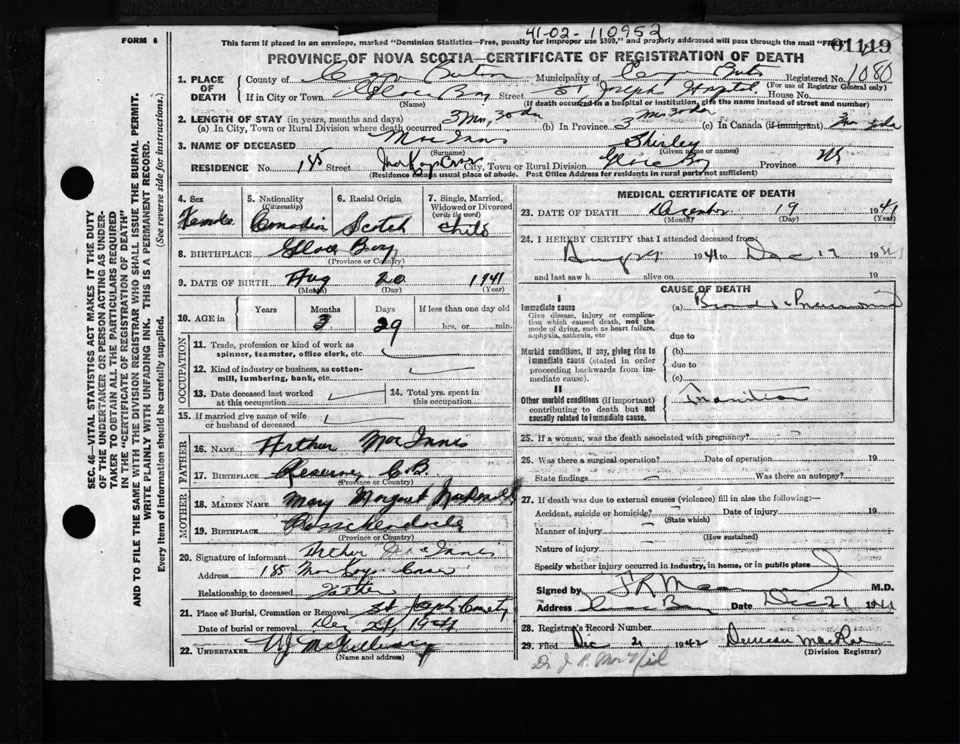 41-02-110952
FORM 6
This form if placed in an envelope, marked "Dominion Statistics—Free, penalty for improper use $300," and properly addressed will pass through the mail "FREE"
01119
PROVINCE OF NOVA SCOTIA—CERTIFICATE OF REGISTRATION OF DEATH
1. PLACE OF DEATH County of Cape Breton Municipality of Cape Breton Registered No. 1080
(For use of Registrar General only)
If in City or Town Glace Bay Street St Josephs Hospital House No.
(Name) (If death occurred in a hospital or institution, give the name instead of street and number)
2. LENGTH OF STAY (in years, months and days)
(a) In City, Town or Rural Division where death occurred 3 Mos, 30 da (b) In Province 3 mos 30 da (c) In Canada (if immigrant)
3. NAME OF DECEASED Mac Innis Shirley
(Surname) (Given name or names)
RESIDENCE No. 185 Street City, Town or Rural Division Glace Bay Province NS
(Residence means usual place of abode. Post Office Address for residents in rural parts not sufficient)
4. Sex Female
5. Nationality (Citizenship) Canadian
6. Racial Origin Scotch
7. Single, Married, Widowed or Divorced (write the word) Child
8. BIRTHPLACE Glace Bay
(Province or Country)
9. DATE OF BIRTH Aug 20 1941
(Month) (Day) (Year)
10. AGE in Years Months 3 Days 29 If less than one day old hrs. or min.
OCCUPATION
11. Trade, profession or kind of work as spinner, teamster, office clerk, etc.
12. Kind of industry or business, as cotton-mill, lumbering, bank, etc.
13. Date deceased last worked at this occupation
14. Total yrs. spent in this occupation
15. If married give name of wife or husband of deceased
FATHER
16. NAME Arthur Mac Innis
17. BIRTHPLACE Reserve C.B.
(Province or Country)
MOTHER
18. MAIDEN NAME Mary Margaret MacDonald
19. BIRTHPLACE Passchendaele
(Province or Country)
20. Signature of informant Arthur Mac Innis
Address 185
Relationship to deceased Father
21. Place of Burial, Cremation or Removal St Joseph
Date of burial or removal Dec 21, 1941
22. UNDERTAKER
(Name and address)
MEDICAL CERTIFICATE OF DEATH
23. DATE OF DEATH December 19 1941
(Month) (Day) (Year)
24. I HEREBY CERTIFY that I attended deceased from:
Aug 29 1941 to Dec 19
and last saw h alive on 19
CAUSE OF DEATH
I
Immediate cause
Give disease, injury or complication which caused death, not the mode of dying, such as heart failure, asphyxia, asthenia, etc
(a) Broncho Pneumonia
due to
Morbid conditions, if any, giving rise to immediate cause (stated in order proceeding backwards from immediate cause).
(b)
due to
(c)
II
Other morbid conditions (if important) contributing to death but not causally related to immediate cause.
25. If a woman, was the death associated with pregnancy?
26. Was there a surgical operation? Date of operation 19
State findings Was there an autopsy?
27. If death was due to external causes (violence) fill in also the following:—
Accident, suicide or homicide? Date of injury 19
(State which)
Manner of injury
(How sustained)
Nature of injury
Specify whether injury occurred in industry, in home, or in public place
Signed by M.D.
Address Glace Bay Date Dec 21 1941
28. Registrar's Record Number
29. Filed Dec 21 1942 Duncan MacRae
(Division Registrar)
Dr J. R. MacNeil
SEC. 46—VITAL STATISTICS ACT MAKES IT THE DUTY
OF THE UNDERTAKER OR PERSON ACTING AS UNDERTAKER TO OBTAIN ALL THE PARTICULARS REQUIRED
IN THE "CERTIFICATE OF REGISTRATION OF DEATH"
AND TO FILE THE SAME WITH THE DIVISION REGISTRAR WHO SHALL ISSUE THE BURIAL PERMIT.
WRITE PLAINLY WITH UNFADING INK. THIS IS A PERMANENT RECORD.
Every item of information should be carefully supplied. (See reverse side for instructions.)